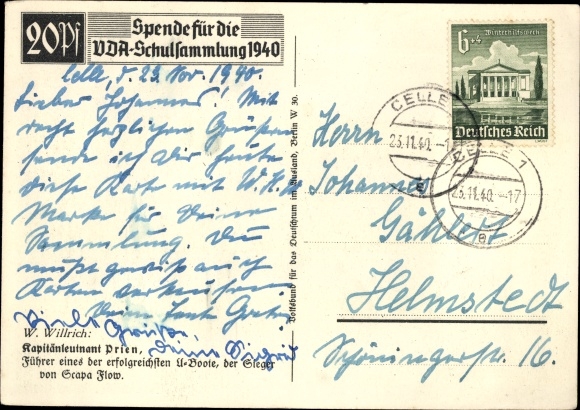 20 Pf
Spende für die
VDA-Schulsammlung 1940
Celle, d. 23. Nov. 1940.
Lieber Johannes! Mit
recht herzlichen Grüßen
sende ich Dir heute
diese Karte mit W.H.W.
Marke für Deine
Sammlung. Du
mußt gewiß auch
Karten verkaufen.
Deine Tante Grete
Viele Grüße,
Deine Sigrid
W. Willrich:
Kapitänleutnant Prien,
Führer eines der erfolgreichsten U-Boote, der Sieger
von Scapa Flow.
Volksbund für das Deutschtum im Ausland, Berlin W 30.
6+4 Winterhilfswerk
Deutsches Reich
CELLE 1
23.11.40.-17
e
CELLE 1
23.11.40.-17
e
Herrn
Johannes
Gählert
Helmstedt
Schöningerstr. 16.